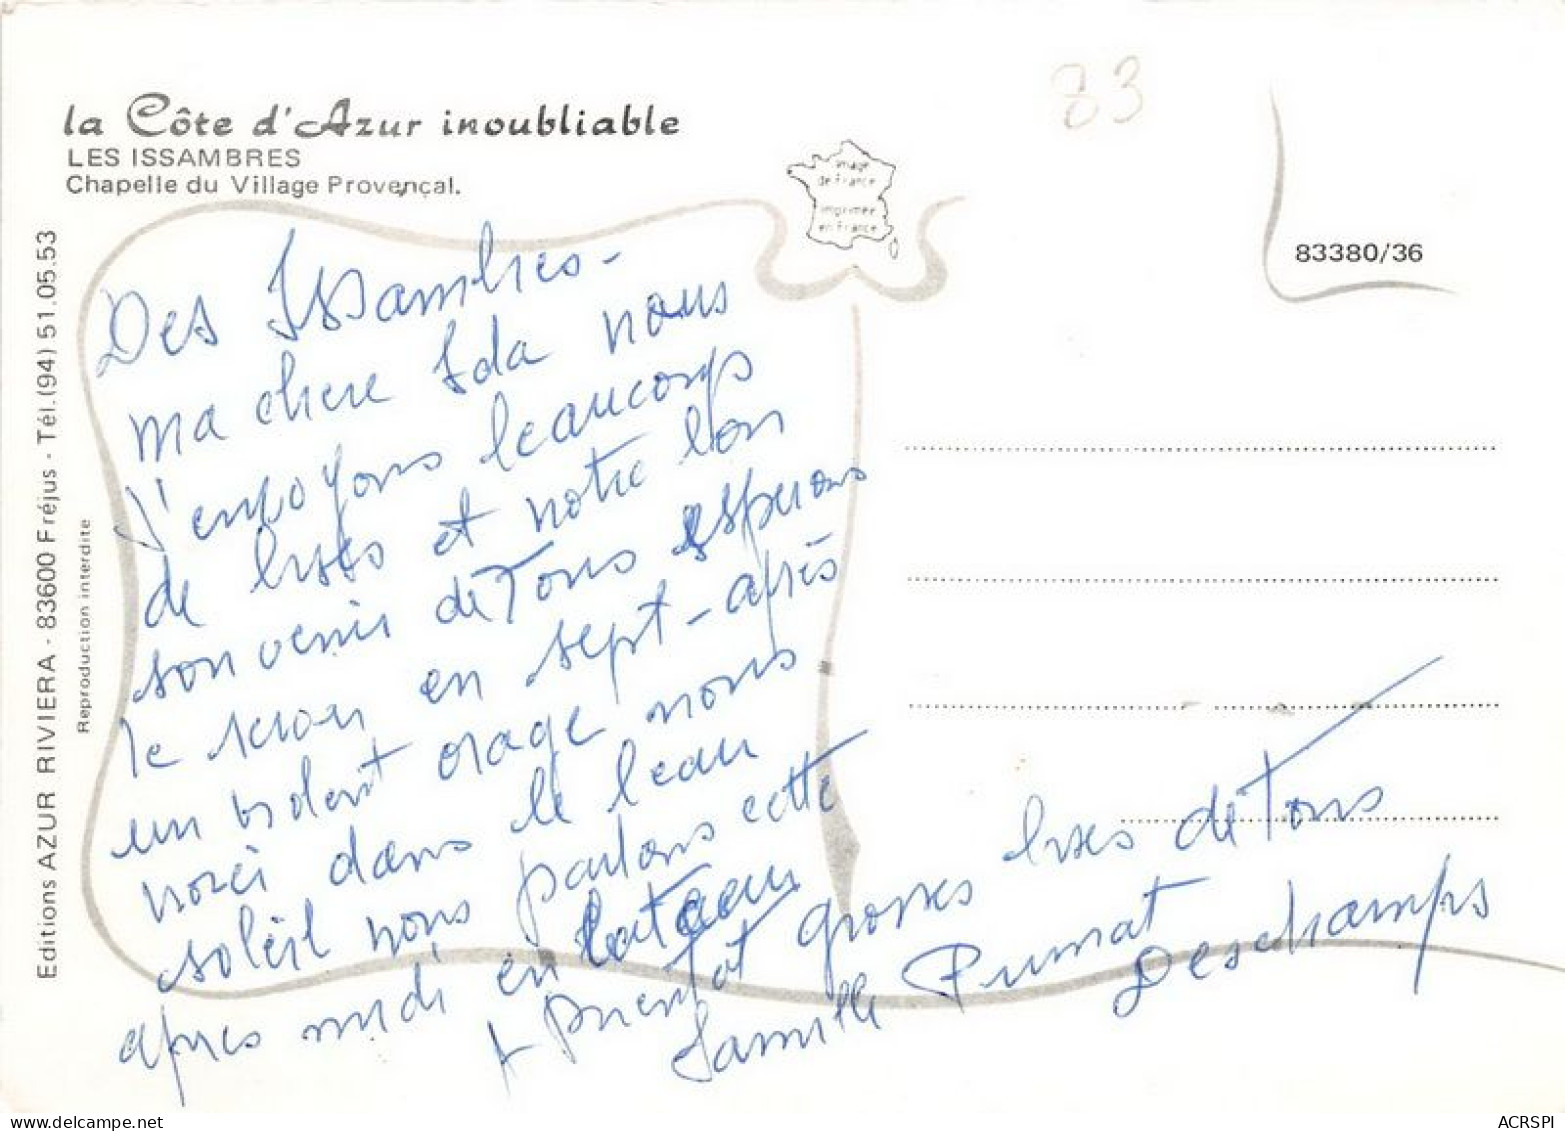 la Côte d'Azur inoubliable
LES ISSAMBRES
Chapelle du Village Provençal.
Editions AZUR RIVIERA - 83600 Fréjus - Tél.(94) 51.05.53
Reproduction interdite
Image
de France
imprimée
en France
83
83380/36
Des Issambres -
ma chere Ida nous
t'envoyons beaucoups
de bises et notre bon
souvenir de Tous esperons
te revoir en sept - après
un violent orage nous
voici dans le beau
soleil nous partons cette
après midi en bateau
A bientot grosses bises de Tous
famille Prunat
Deschamps
ACRSPI